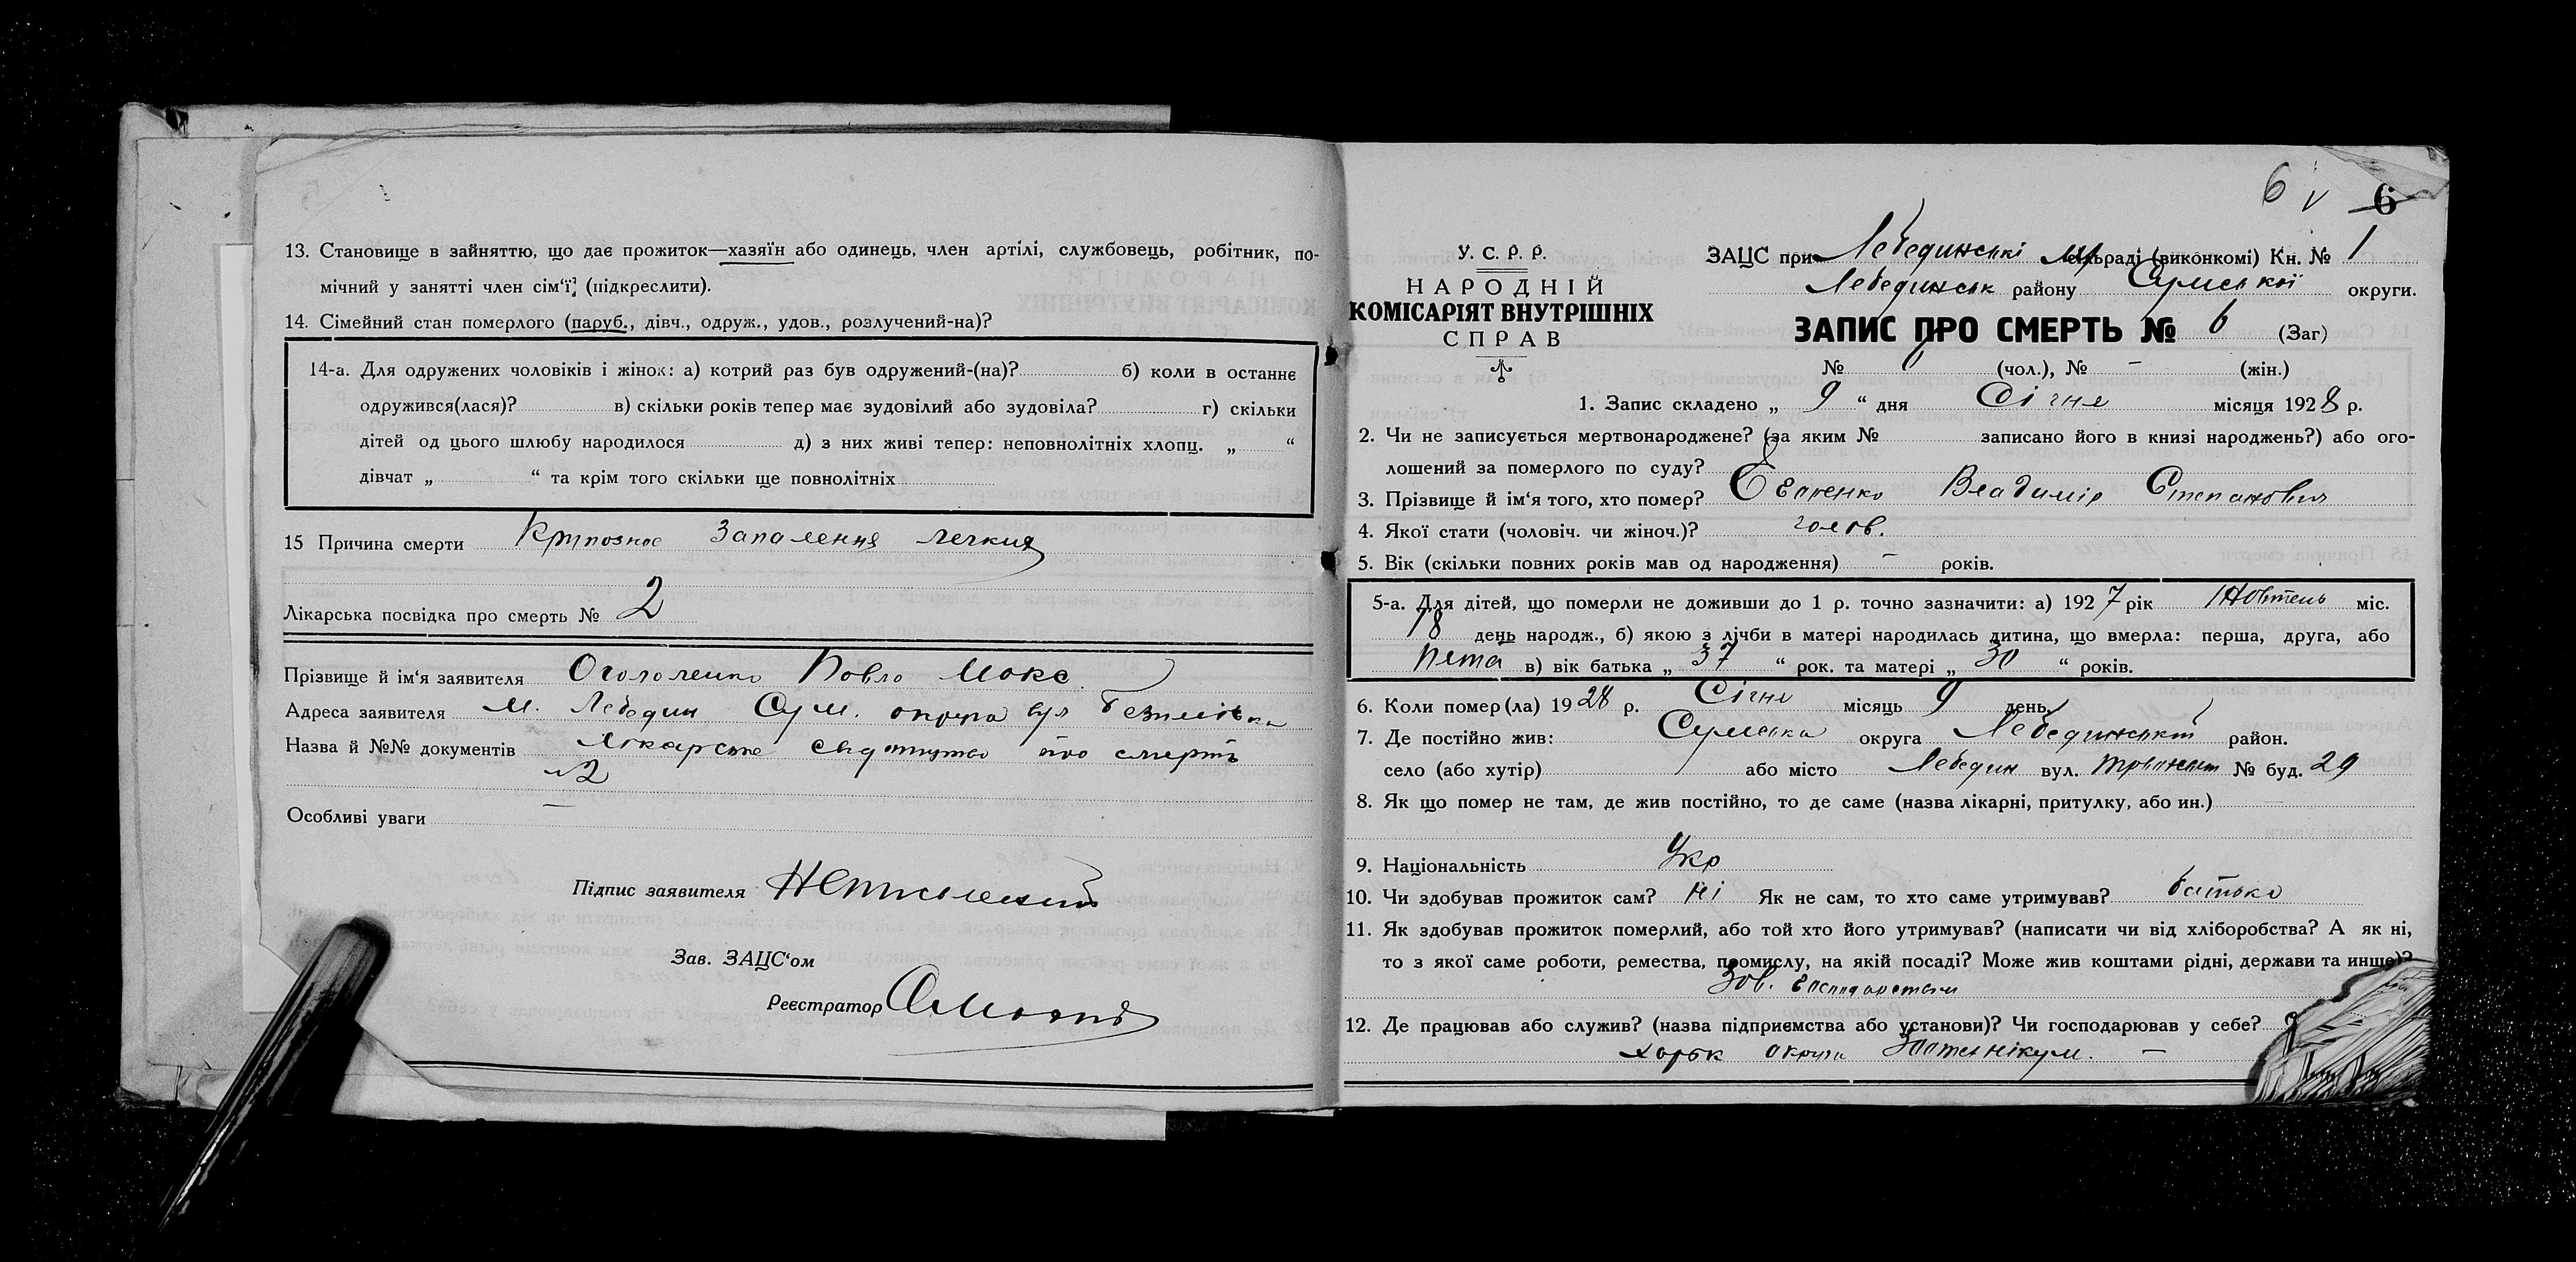 13. Становище в зайняттю, що дає прожиток—хазяїн або одинець, член артілі, службовець, робітник, по-
мічний у занятті член сім'ї, (підкреслити).
14. Сімейний стан померлого (паруб., дівч., одруж., удов., розлучений-на)?
14-а. Для одружених чоловіків і жінок: а) котрий раз був одружений-(на)? б) коли в останнє
одружився(лася)? в) скільки років тепер має зудовілий або зудовіла? г) скільки
дітей од цього шлюбу народилося д) з них живі тепер: неповнолітніх хлопц. „ “
дівчат „ “ та крім того скільки ще повнолітніх
15 Причина смерти Крупозное Запалення легких
Лікарська посвідка про смерть № 2
Прізвище й ім'я заявителя Павло Макс.
Адреса заявителя м. Лебедин Сум. округа вул
Назва й №№ документів Лікарське про смерть
№2
Особливі уваги —
Підпис заявителя Неписьменний
Зав. ЗАЦС'ом
Реєстратор
6 v 6
У. С. Р. Р.
НАРОДНІЙ
КОМІСАРІЯТ ВНУТРІШНІХ
СПРАВ
ЗАЦС при Лебединські раді (виконкомі) Кн. № 1
Лебединськ району Сумської округи.
ЗАПИС ПРО СМЕРТЬ № 6 (Заг)
№ 6 (чол.), № — (жін.)
1. Запис складено „ 9 “ дня Січня місяця 1928 р.
2. Чи не записується мертвонароджене? (за яким № записано його в книзі народжень?) або ого-
лошений за померлого по суду?
3. Прізвище й ім'я того, хто помер? Владимір Степанович
4. Якої стати (чоловіч. чи жіноч.)? чолов.
5. Вік (скільки повних років мав од народження) — років.
5-а. Для дітей, що померли не доживши до 1 р. точно зазначити: а) 1927 рік Жовтень міс.
18 день народж., б) якою з лічби в матері народилась дитина, що вмерла: перша, друга, або
пята в) вік батька „ 37 “ рок. та матері „ 30 “ років.
6. Коли помер(ла) 1928 р. Січня місяць 9 день.
7. Де постійно жив: Сумська округа Лебединський район.
село (або хутір) або місто Лебедин вул. № буд. 29
8. Як що помер не там, де жив постійно, то де саме (назва лікарні, притулку, або ин.)
9. Національність Укр
10. Чи здобував прожиток сам? Ні Як не сам, то хто саме утримував? батько
11. Як здобував прожиток померлий, або той хто його утримував? (написати чи від хліборобства? А як ні,
то з якої саме роботи, ремества, промислу, на якій посаді? Може жив коштами рідні, держави та инше)?
Зав. господарством
12. Де працював або служив? (назва підприємства або установи)? Чи господарював у себе?
Харьк округа